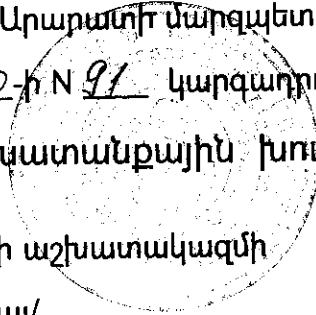 Արարատի մարզպետ
-ի N 91 կարգադրու
աշխատանքային խու
ի աշխատակազմի